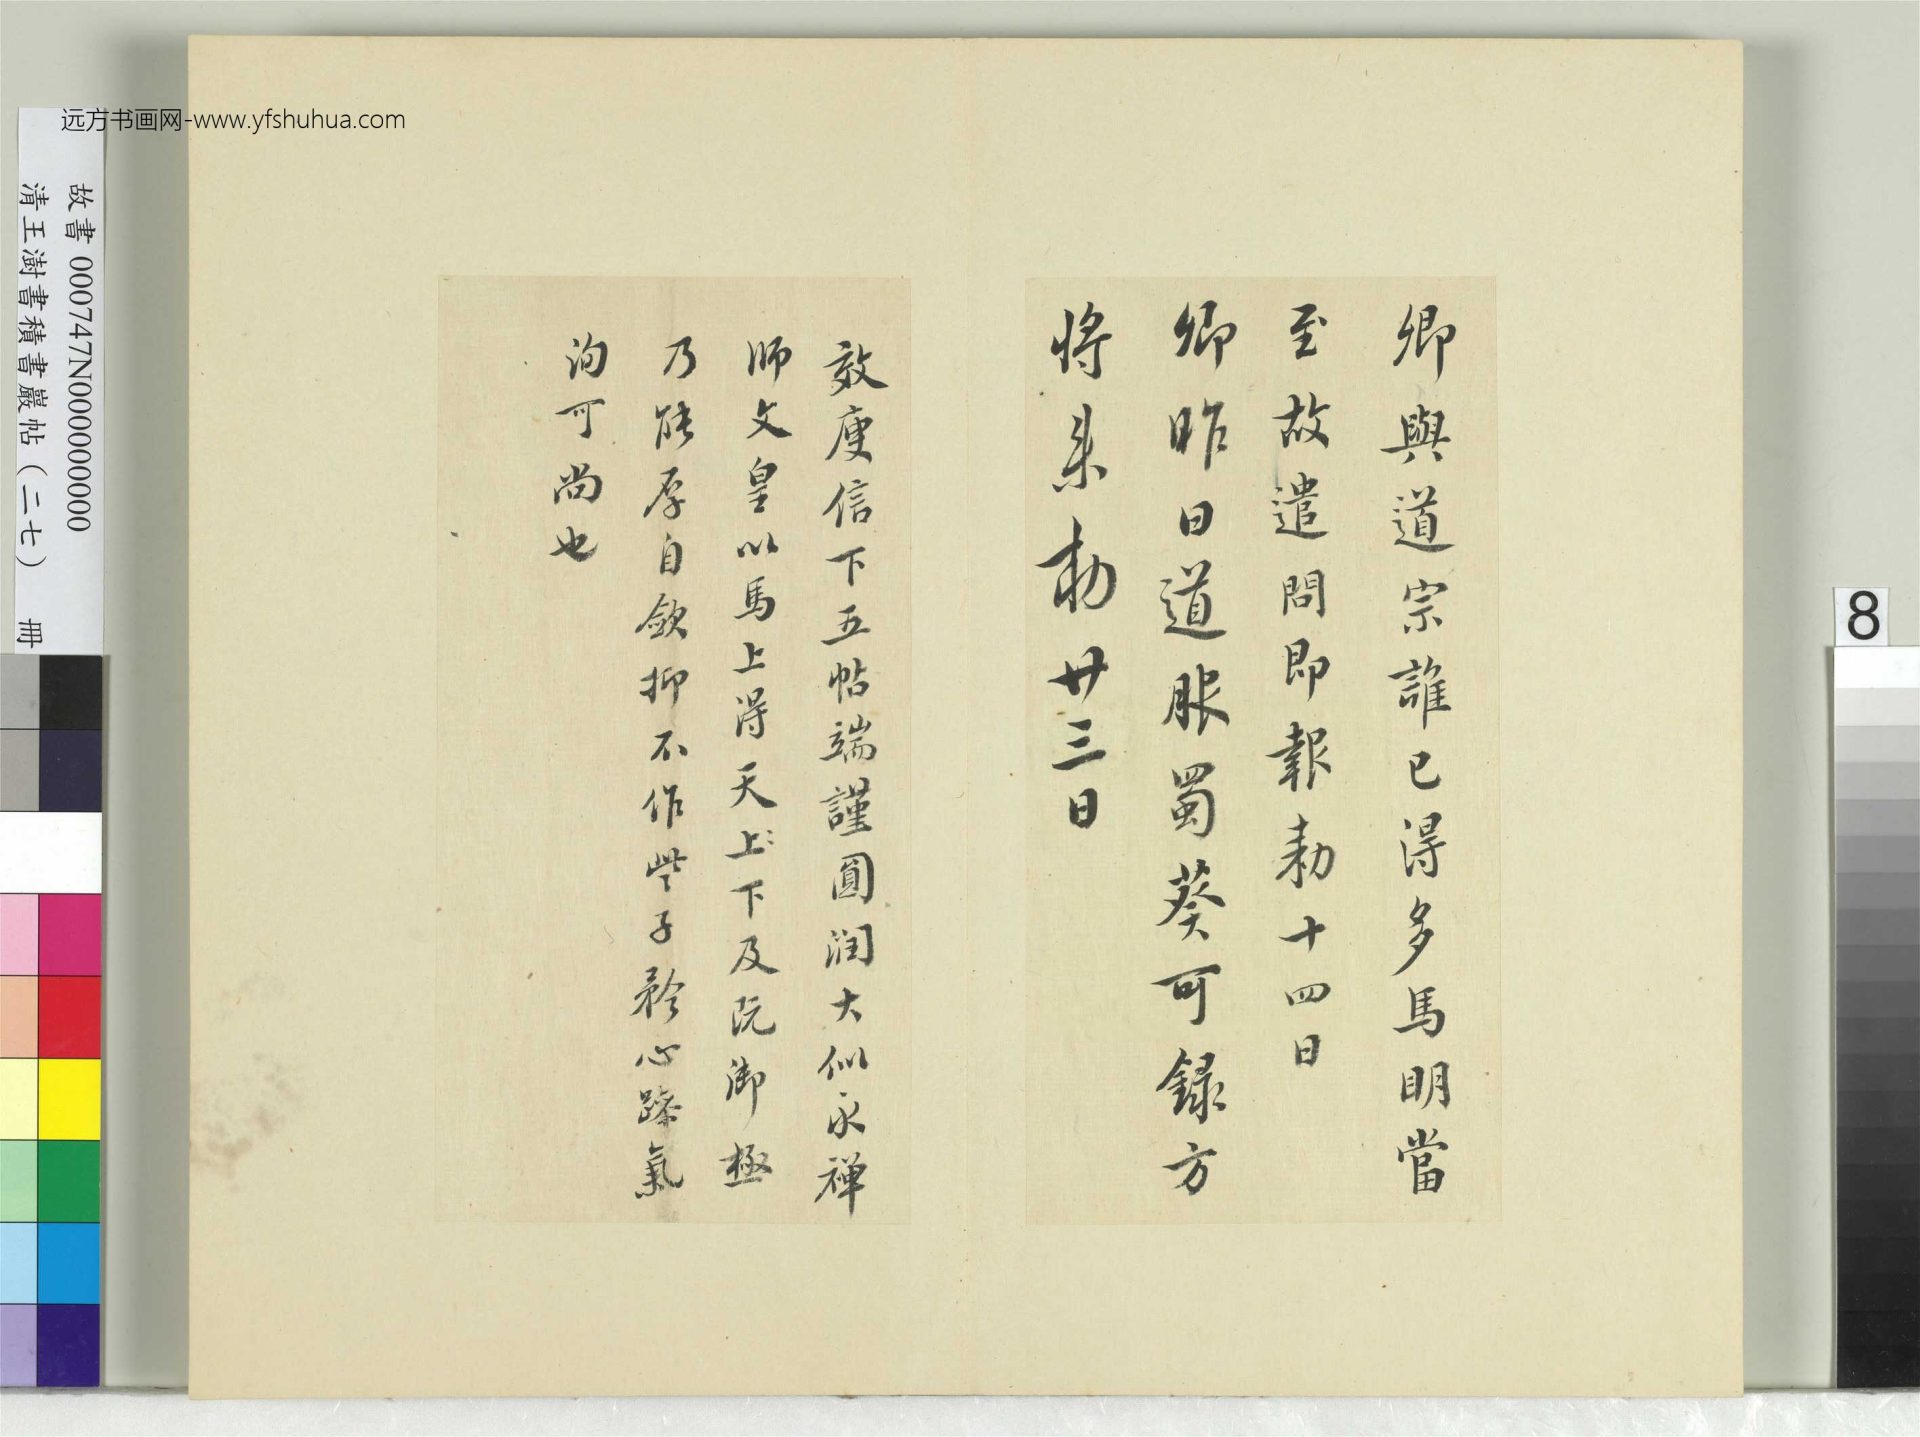 远方书画网-www.yfshuhua.com
故書 000747N000000000
清王澍書積書巖帖（二七） 冊
8
卿與道宗誰已得多馬明當
至故遣問即報勅十四日
卿昨日道服蜀葵可錄方
將來勅廿三日
效庾信下五帖端謹圓潤大似永禪
師文皇以馬上得天上〻下及阮御極
乃能厚自斂抑不作些子矜心躁氣
洵可尚也